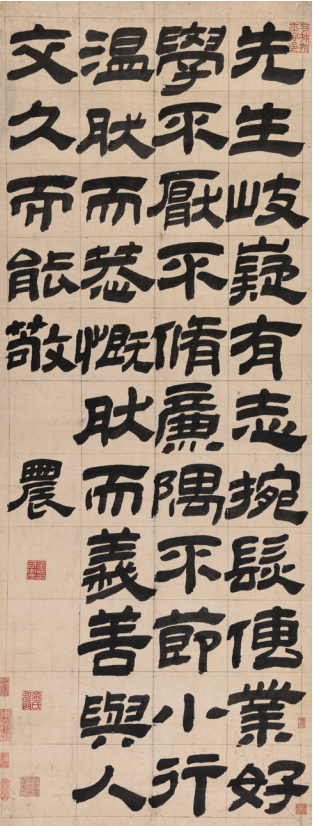 先生岐嶷有志捥髮傳業好
學不厭不脩廉隅不節小行
温肰而恭慨肰而義善與人
交久而能敬
農